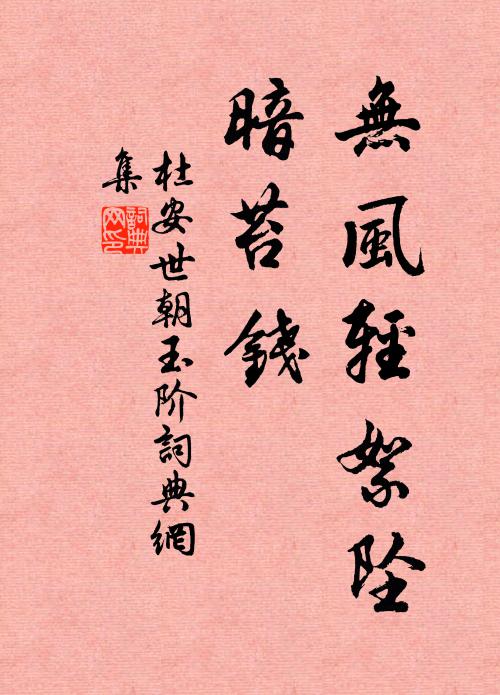 無風輕絮墜
暗苔錢
杜安世朝玉阶詞典網
集
詞典
网印